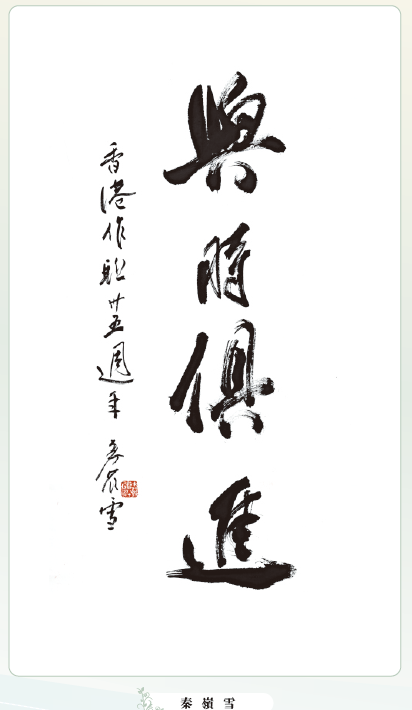 與時俱進
香港作聯廿五週年
秦嶺雪
秦嶺雪